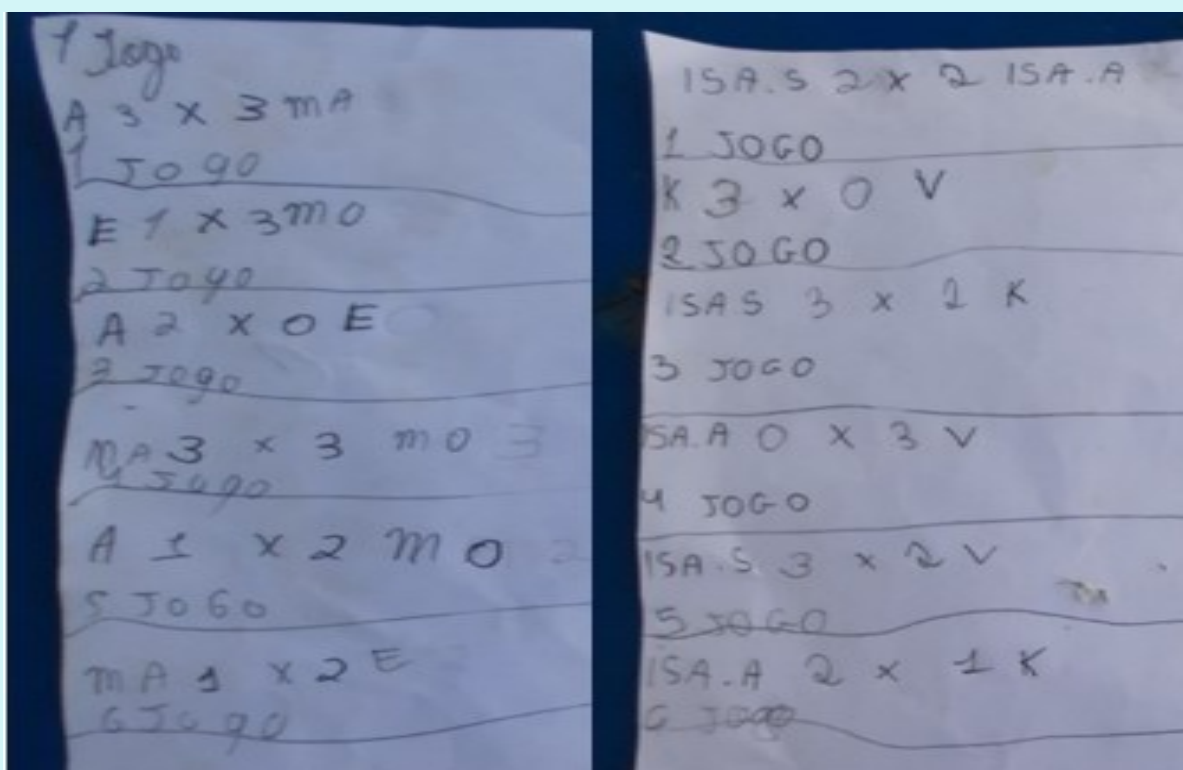 1 Jogo
A 3 x 3 mA
1 Jogo
E 1 x 3 mo
2 Jogo
A 2 x 0 E
3 Jogo
mA 3 x 3 mo 3
4 Jogo
A 1 x 2 mo 2
5 JOGO
mA 1 x 2 E
6 Jogo
ISA.S 2 x 2 ISA.A
1 JOGO
K 3 x 0 V
2 JOGO
ISA.S 3 x 2 K
3 JOGO
ISA.A 0 x 3 V
4 JOGO
ISA.S 3 x 2 V
5 JOGO
ISA.A 2 x 1 K
6 Jogo